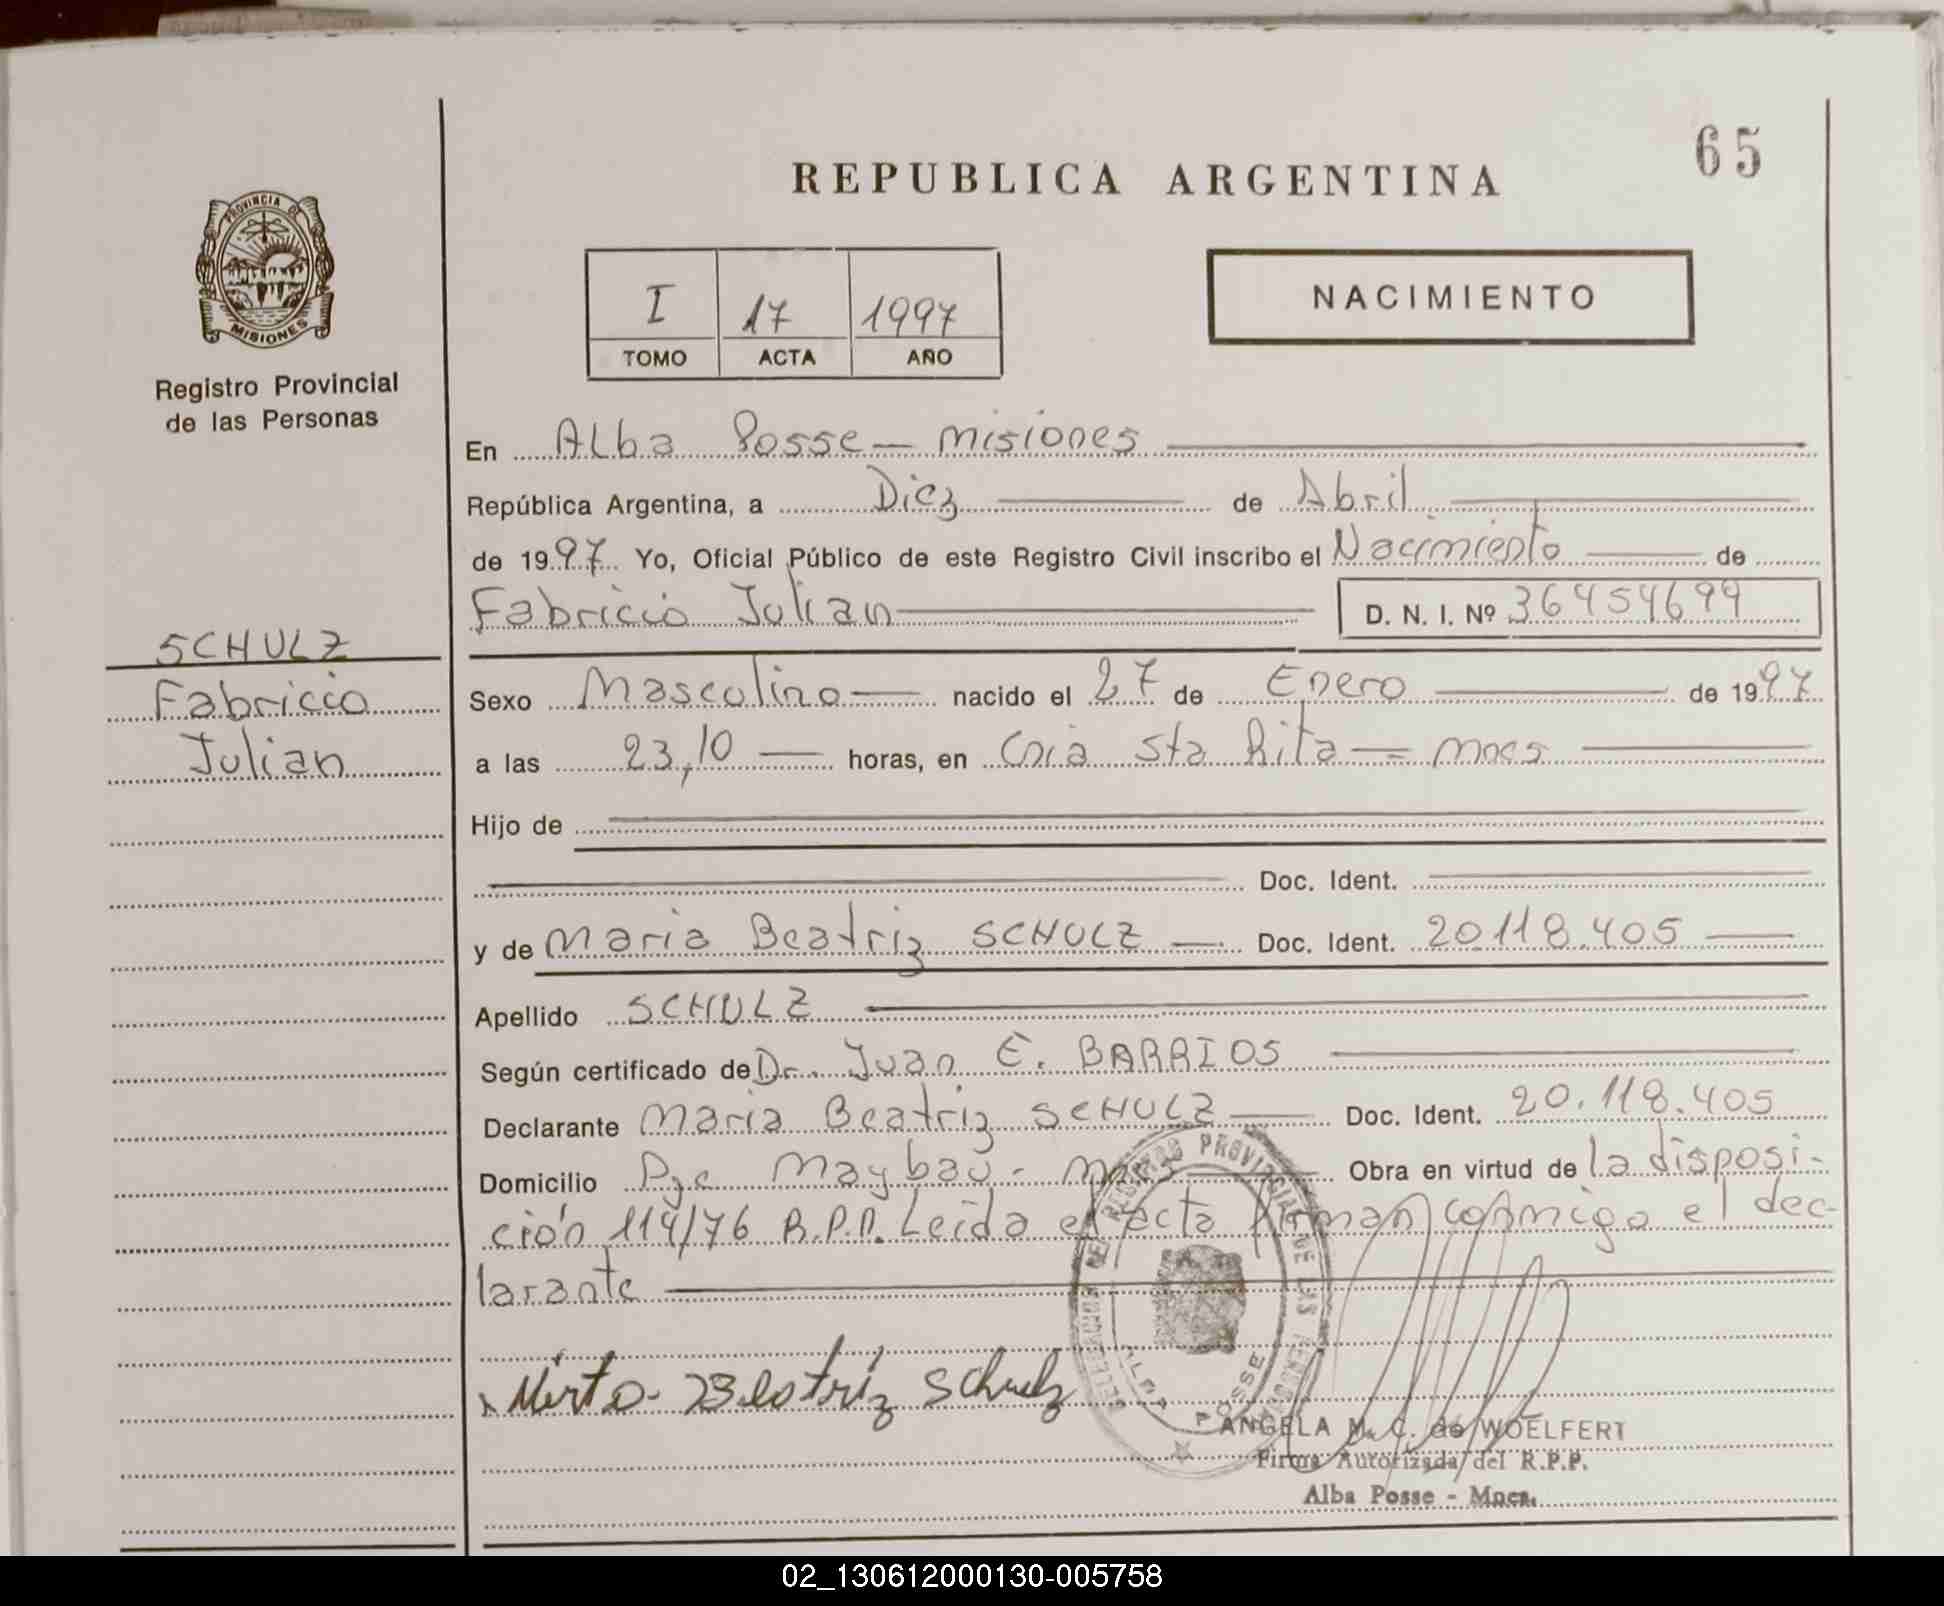 65
REPUBLICA ARGENTINA
PROVINCIA DE
MISIONES
Registro Provincial
de las Personas
I 17 1997
TOMO ACTA AÑO
NACIMIENTO
En Alba Posse - misiones
República Argentina, a Diez de Abril
de 1997 Yo, Oficial Público de este Registro Civil inscribo el Nacimiento de
Fabricio Julian D. N. I. Nº 36454699
SCHULZ
Fabricio
Julian
Sexo Masculino nacido el 27 de Enero de 1997
a las 23,10 horas, en Cnia Sta Rita - mnes
Hijo de
Doc. Ident.
y de Maria Beatriz SCHULZ Doc. Ident. 20118.405
Apellido SCHULZ
Según certificado de Dr. Juan E. BARRIOS
Declarante Maria Beatriz SCHULZ Doc. Ident. 20.118.405
Domicilio Pje Maybau - Obra en virtud de la disposi-
ción 114/76 R.P.P. Leida el acta firman conmigo el dec-
larante
Mirta Beatriz Schulz
REGISTRO PROVINCIAL DE LAS PERSONAS
ALBA POSSE
ANGELA M. C. de WOELFERT
Firma Autorizada del R.P.P.
Alba Posse - Mnes.
02_130612000130-005758